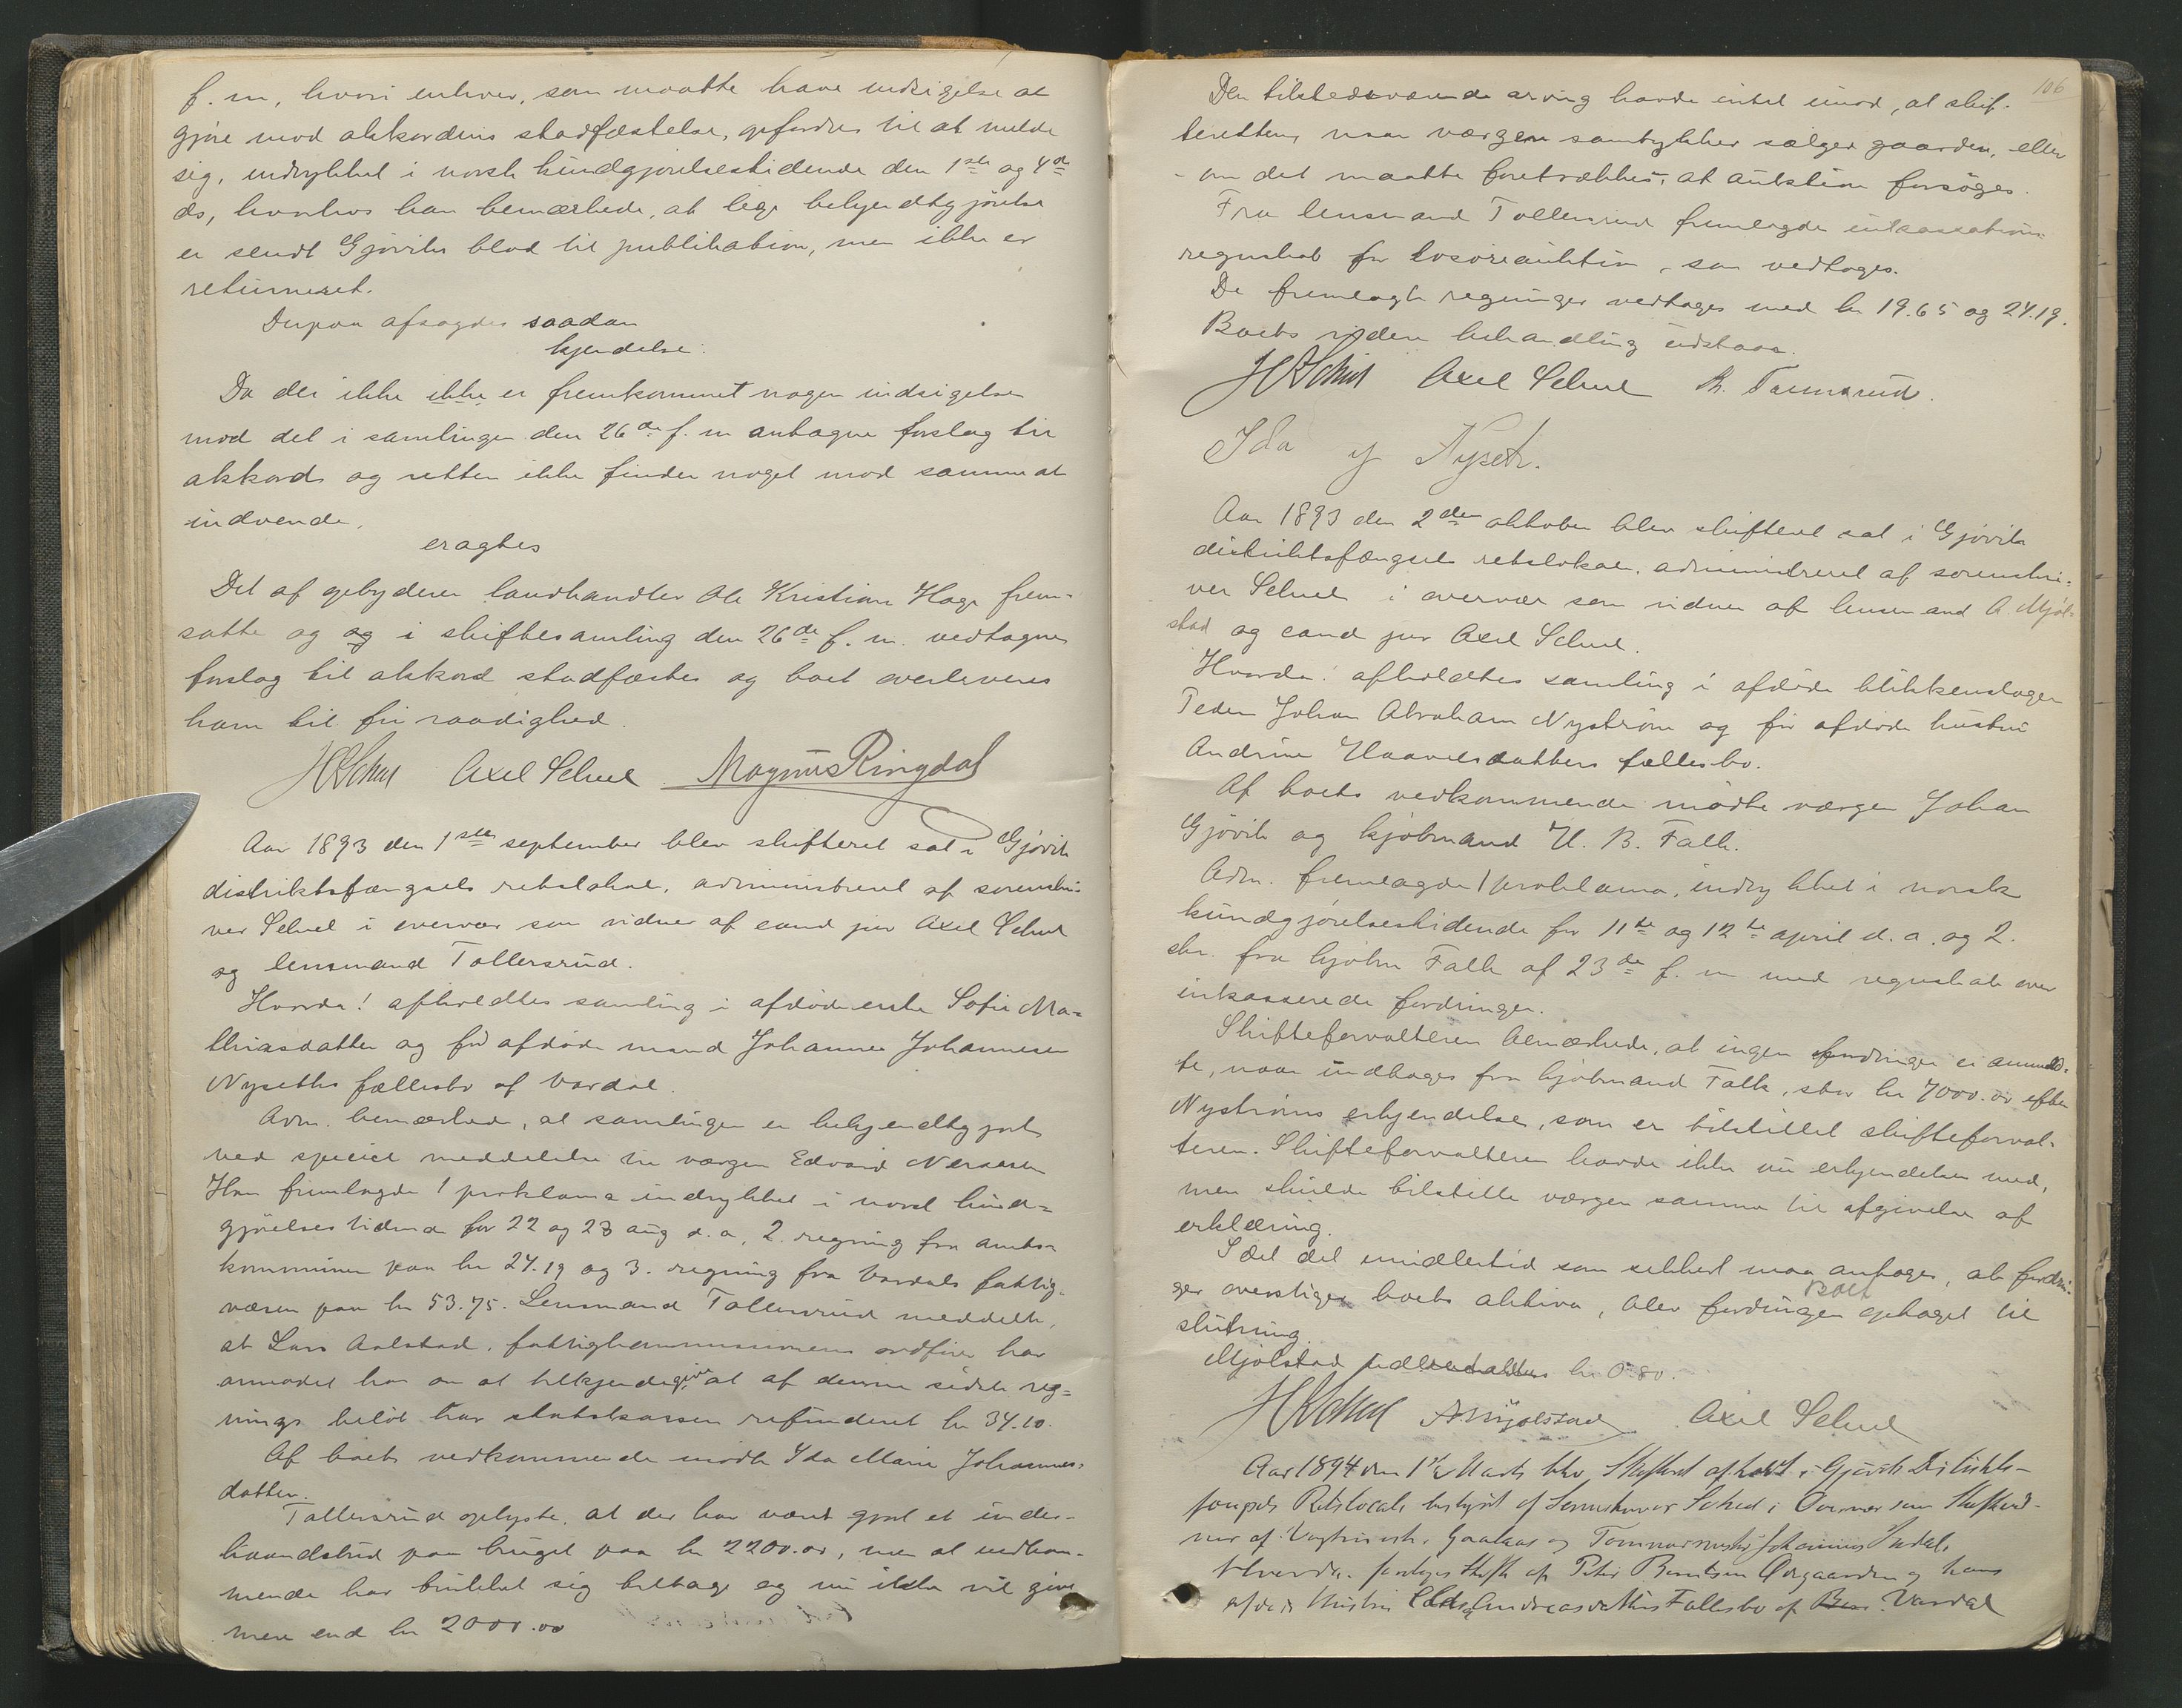 f. m, hvori enhver, som maatte have indsigelse at
gjøre mod akkordens stadfæstelse, opfordres til at melde
sig, indrykket i norsk kundgjørelsestidende den 1ste og 4de
ds, hvorhos han bemærkede, at lige bekjendtgjørelse
er sendt Gjøviks blad til publikation, men ikke er
returneret.
Derpaa afsagdes saadan
kjendelse:
Da der ikke ikke er fremkommet nogen indsigelse
mod det i samlingen den 26de f. m antagne forslag til
akkord og retten ikke finder noget mod samme at
indvende,
eragtes
Det af opbyderen landhandler Ole Kristian Hage frem-
satte og og i skiftesamling den 26de f. m. vedtagne
forslag til akkord stadfæstes og boet overleveres
ham til fri raadighed.
Axel Schul Magnus Ringdal
Aar 1893 den 1ste september blev skifteret sat i Gjøvik
distriktsfængsels retslokale, administreret af sorenskri-
ver Schul i overvær som vidner af cand jur Axel Schul
og lensmand Tollersrud.
Hvorda! afholdtes samling i afdøde enke Sofie Ma-
thiasdatter og før afdøde mand Johannes Johannesen
Nyseths fællesbo af Vardal.
Adm. bemærkede, at samlingen er bekjendtgjort
ved speciel meddelelse til værgen Edvard
Han fremlagde 1 proklama indrykket i norsk kund-
gjørelsestidende for 22 og 23 aug d. a, 2. regning fra amts-
kommunen paa kr 24.19 og 3. regning fra Vardals fattig-
væsen paa kr 53.75. Lensmand Tollersrud meddelte,
at Lars Aalstad, fattigkommissionens ordfører har
anmodet ham om at tilkjendegive at af denne sidste reg-
nings beløb har statskassen refunderet kr 34.10.
Af boets vedkommende mødte Ida Marie Johannes-
datter.
Tollersrud oplyste, at der har været gjort et under-
haandsbud paa bruget paa kr 2200.00, men at vedkom-
mende har trukket sig tilbage og nu ikke vil give
mere end kr 2000.00
106
Den tilstedeværende arving havde intet imod, at skif-
teretten, naar værgen samtykker sælger gaarden, eller
om det maatte foretrækkes, at auktion forsøges.
Fra lensmand Tollersrud fremlagdes inkassations
regnskab for løsøreauktion, som vedtoges.
De fremlagte regninger vedtoges med kr 19.65 og 24.19.
Boets videre behandling udstaar.
Axel Schul Tollersrud.
Ida Nyseth.
Aar 1893 den 2den oktober blev skifteret sat i Gjøvik
distriktsfængsels retslokale, administreret af sorenskri-
ver Schul i overvær som vidner af lensmand A. Mjøl-
stad og cand jur Axel Schul.
Hvorda! afholdtes samling i afdøde blikkenslager
Peder Johan Abraham Nystrøm og før afdøde hustru
Andrine Haavelsdatters fællesbo.
Af boets vedkommende mødte værgen Johan
Gjøvik og kjøbmand H. B. Falk.
Adm. fremlagde 1 proklama, indrykket i norsk
kundgjørelsestidende for 11te og 12te april d. a. og 2.
skr. fra kjøbm Falk af 23de f. m med regnskab over
inkasserede fordringer.
Skifteforvalteren bemærkede, at ingen fordringer er anmeld-
te, naar undtages fra kjøbmand Falk, stor kr 7000.00 efter
Nystrøms erkjendelse, som er tilstillet skifteforval-
teren. Skifteforvalteren havde ikke nu erkjendelsen med,
men skulde tilstille værgen samme til afgivelse af
erklæring.
Idet det imidlertid som sikkert maa antages, at fordrin-
ger overstiger boets aktiva, blev fordringen Boet optaget til
slutning.
Mjølstad tilstedes kr 0.80.
A Mjølstad Axel Schul
Aar 1894 den 1ste Marts blev Skifteret afholdt i Gjøvik Distrikts-
fængsels Retslocale bestyret af Sorenskriver Schul i Overvær som Skifteret-
af Johannes
Hvorda foretoges Skifte efter Peter Berntsen og hans
afdøde Hustru Andreasdatters Fællesbo af Vardal